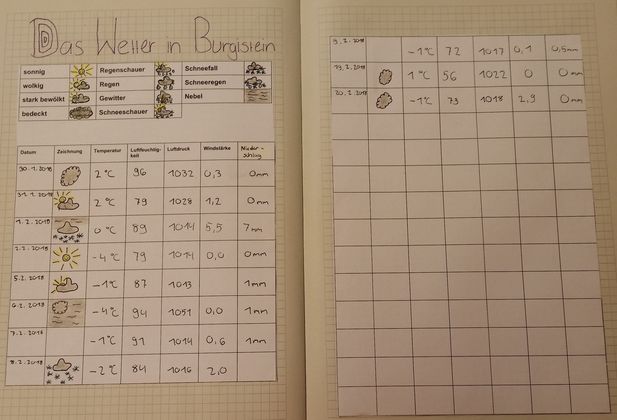 Das Wetter in Burgistein
sonnig Regenschauer Schneefall
wolkig Regen Schneeregen
stark bewölkt Gewitter Nebel
bedeckt Schneeschauer
Datum Zeichnung Temperatur Luftfeuchtig-keit Luftdruck Windstärke Nieder-schlag
30.1.2018 2°C 96 1032 0,3 0mm
31.1.2018 2°C 79 1028 1,2 0mm
1.2.2018 0°C 89 1014 5,5 7mm
2.2.2018 -4°C 79 1014 0,0 0mm
5.2.2018 -1°C 87 1013 1mm
6.2.2018 -4°C 94 1051 0,0 1mm
7.2.2018 -1°C 91 1014 0,6 1mm
8.2.2018 -2°C 84 1016 2,0
9.2.2018 -1°C 72 1017 0,1 0,5mm
19.2.2018 1°C 56 1022 0 0mm
20.2.2018 -1°C 79 1018 2,9 0mm